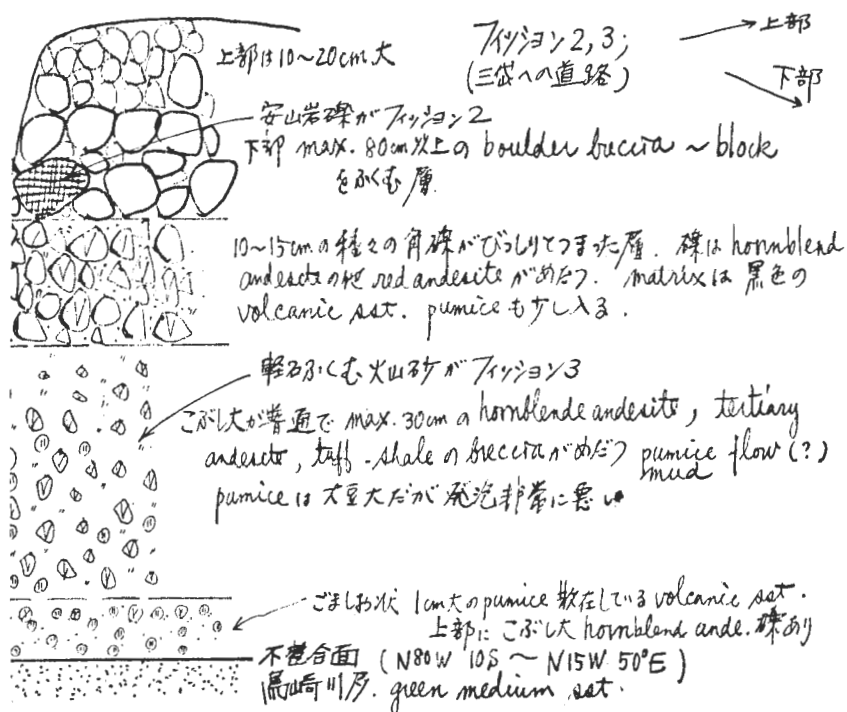 フィッション2, 3;
(三岱への道路)
上部
下部
上部は10〜20cm大
安山岩礫がフィッション2
下部 max. 80cm以上の boulder breccia 〜 block
をふくむ層
10〜15cmの種々の角礫がびっしりとつまった層. 礫は hornblend
andesiteの他 red andesite がめだつ. matrixは黒色の
volcanic sst. pumiceも少し入る.
軽石ふくむ火山砂がフィッション3
こぶし大が普通で max. 30cmの hornblende andesite, tertiary
andesite, tuff-shaleの brecciaがめだつ pumice flow (?)
mud
pumiceは大豆大だが発泡非常に悪い
ごましお状 1cm大のpumice散在している volcanic sst.
上部に こぶし大 hornblend ande. 礫あり
不整合面 (N80W 10S 〜 N15W 50°E)
川層. green medium sst.